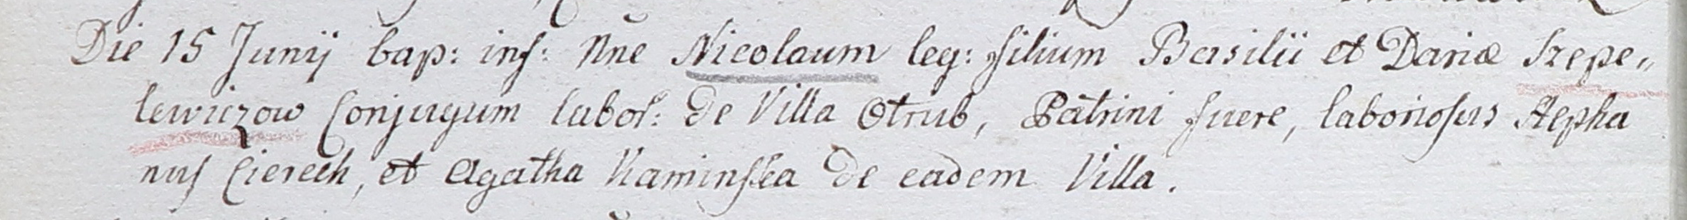 Die 15 Junij bap: inf: Nne Nicolaum leg: filium Basilii et Dariæ Szepe„
lewiczow Conjugum labor: de Villa Otrub, Patrini fuere, laboriosus Stepha
nus Cierech, et Agatha Kaminska de eadem Villa.